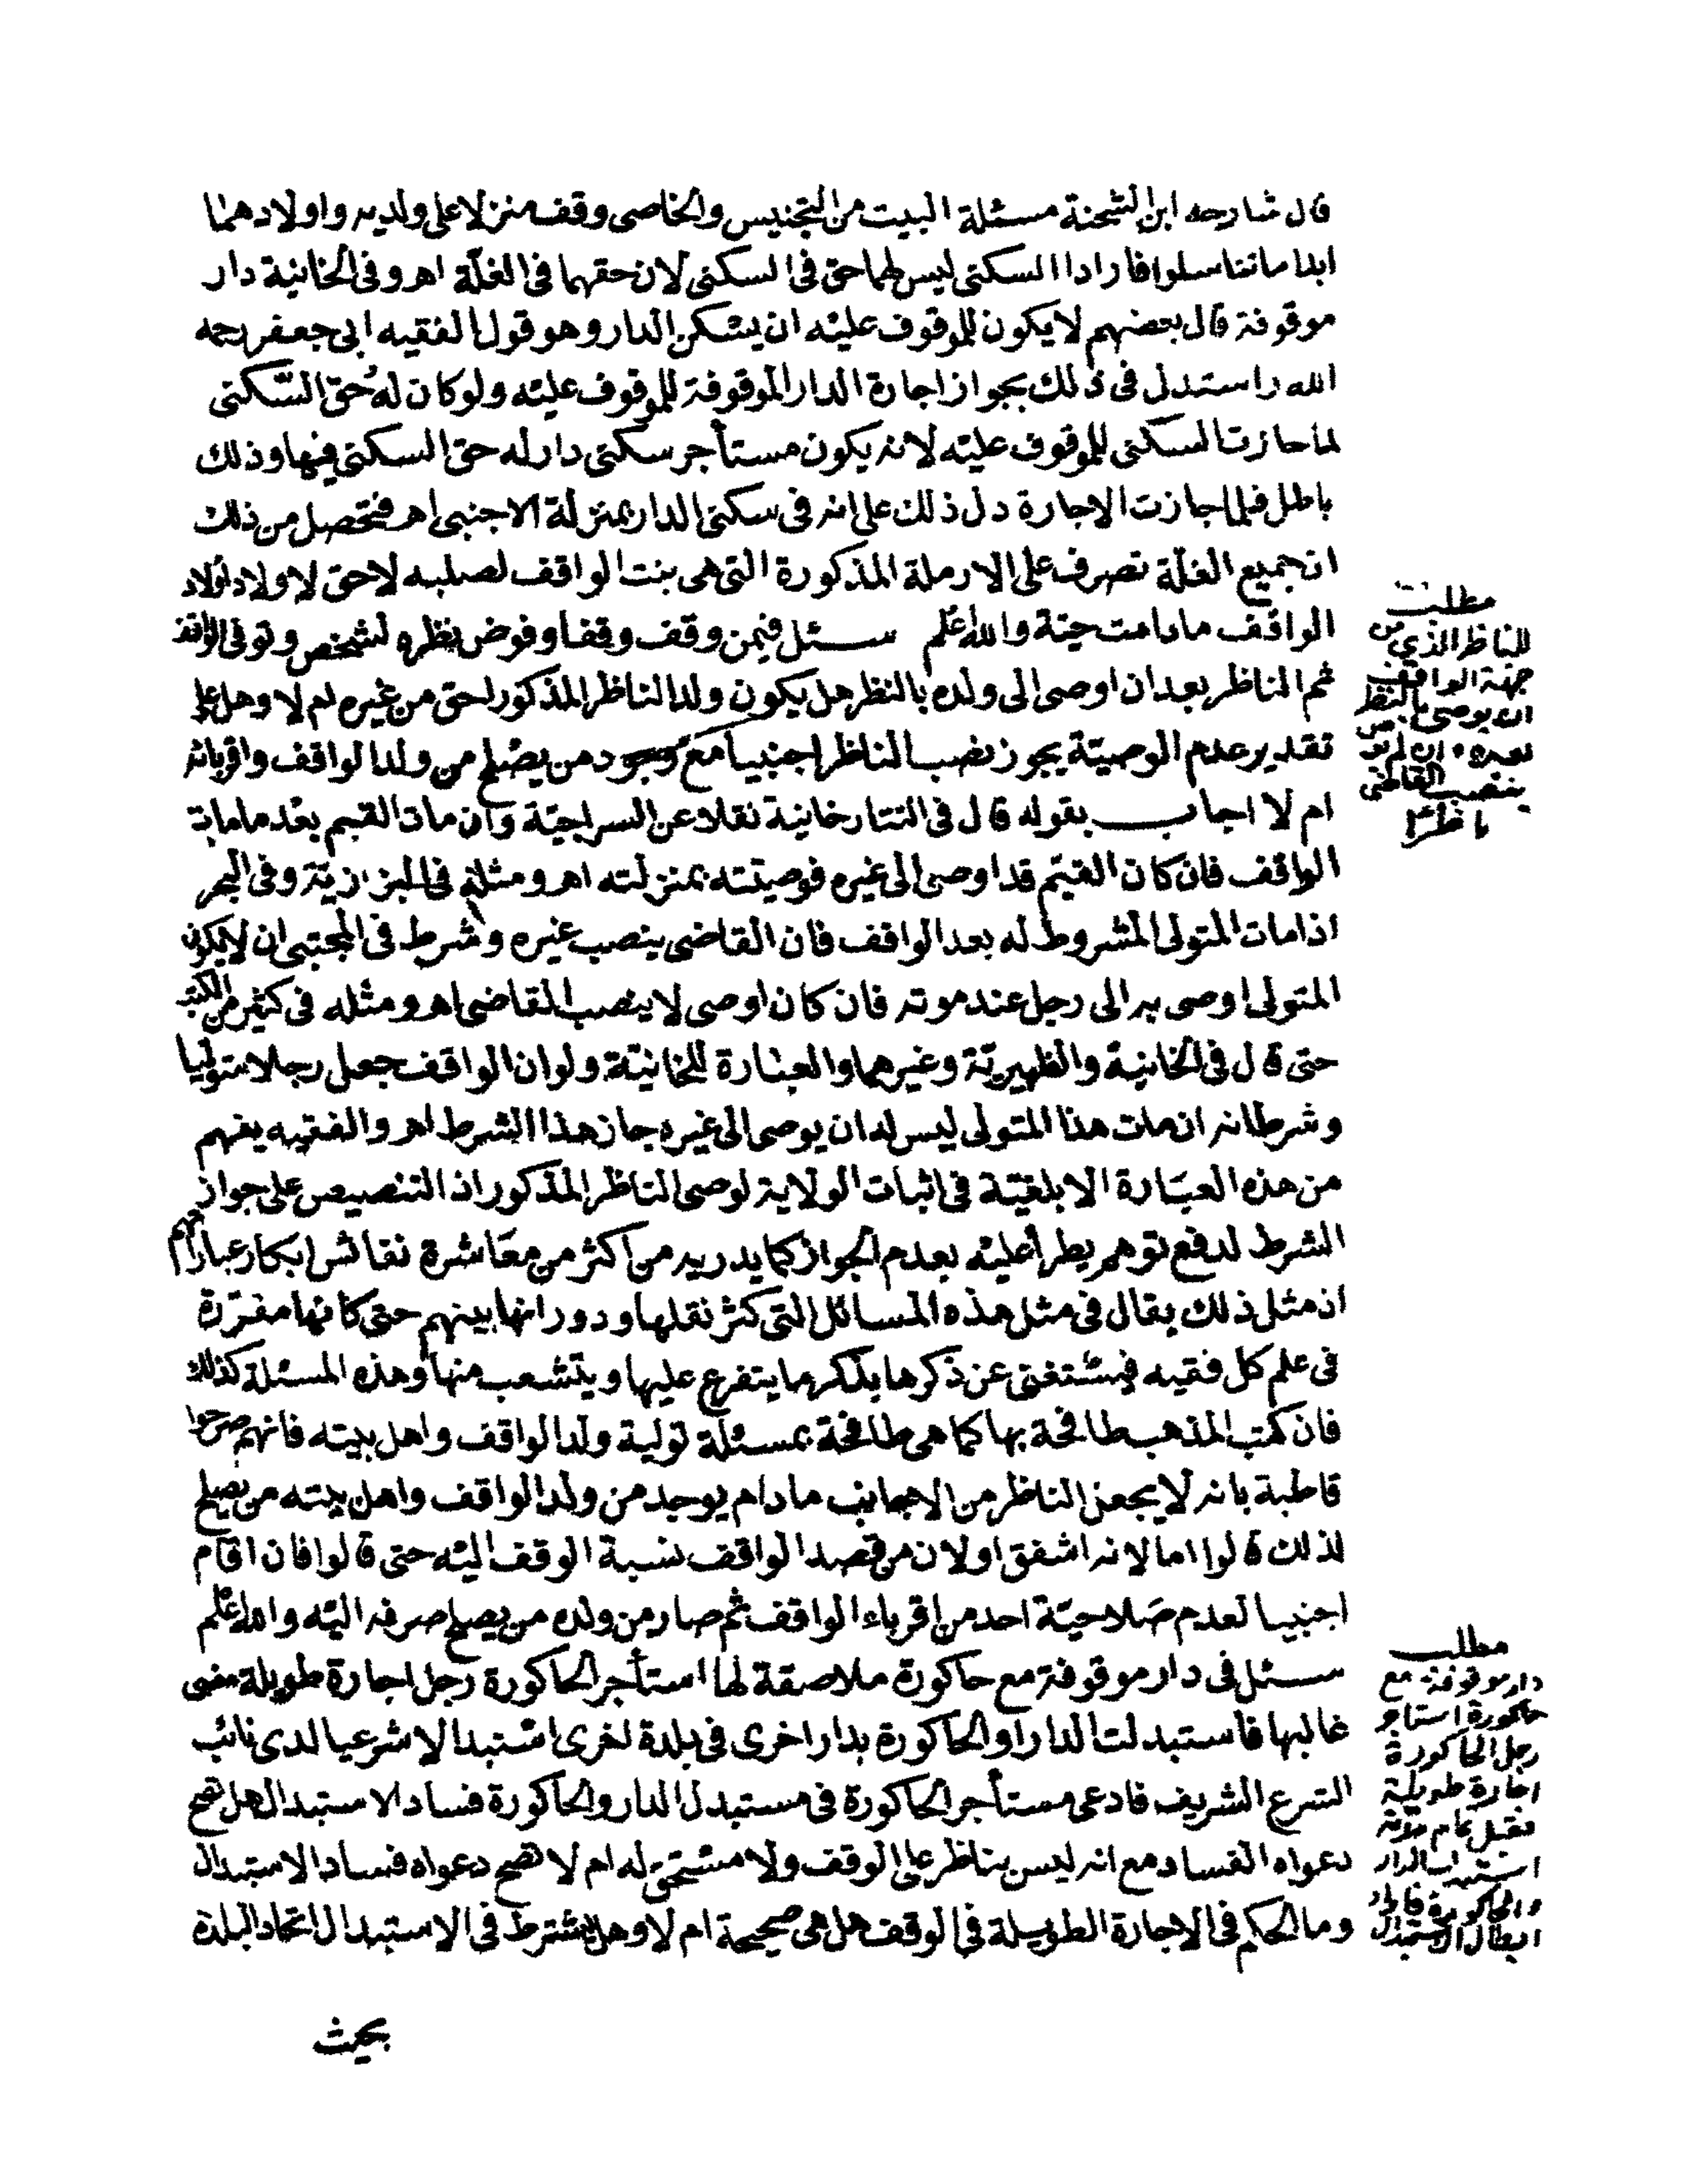 قال شارحه ابن الشحنة مسئلة البيت من التجنيس والخاصى وقف منزلا على ولديه واولادهما
ابدا ما تناسلوا فارادا السكنى ليس لهما حق فى السكنى لان حقهما فى الغلّة اهـ وفى الخانية دار
موقوفة قال بعضهم لا يكون للموقوف عليه ان يسكن الدار وهو قول الفقيه ابى جعفر رحمه
الله واستدل فى ذلك بجواز اجارة الدار الموقوفة للموقوف عليه ولو كان له حق السّكنى
لما جازت السكنى للموقوف عليه لانه يكون مستأجر سكنى دار له حق السكنى فيها وذلك
باطل فلما جازت الاجارة دل ذلك على انه فى سكنى الدار بمنزلة الاجنبى اهـ فتحصل من ذلك
ان جميع الغلّة تصرف على الارملة المذكورة التى هى بنت الواقف لصلبه لا حق لاولاد اولاد
الواقف ما دامت حية والله اعلم سئل فيمن وقف وقفا وفوض نظره لشخص وتوفى الواقف
ثم الناظر بعد ان اوصى الى ولده بالنظر هل يكون ولد الناظر المذكور احق من غيره ام لا وهل على
تقدير عدم الوصيّة يجوز نصب الناظر اجنبيا مع وجود من يصلح من ولد الواقف واقربائه
ام لا اجاب بقوله قال فى التتارخانية نقلا عن السراجيّة وان مات القيم بعد ما مات
الواقف فان كان القيّم قد اوصى الى غيره فوصيته بمنزلته اهـ ومثله فى البزازية وفى البحر
اذا مات المتولى المشروط له بعد الواقف فان القاضى ينصب غيره وشرط فى المجتبى ان لا يكون
المتولى اوصى به الى رجل عند موته فان كان اوصى لا ينصب القاضى اهـ ومثله فى كثير من الكتب
حتى قال فى الخانية والظهيريّة وغيرهما والعبارة للخانيّة ولو ان الواقف جعل رجلا متوليا
وشرط انه ان مات هذا المتولى ليس له ان يوصى الى غيره جاز هذا الشرط اهـ والفقيه يفهم
من هذه العبارة الابلغيّة فى اثبات الولاية لوصى الناظر المذكور اذ التنصيص على جواز
الشرط لدفع توهم يطرأ عليه بعدم الجواز كما يدريه من اكثر من معاشرة نفائس ابكار عباراتهم
اذ مثل ذلك يقال فى مثل هذه المسائل التى كثر نقلها ودورانها بينهم حتى كانها مقرّرة
فى علم كل فقيه فيستغنى عن ذكرها بذكر ما يتفرع عليها ويتشعب منها وهذه المسئلة كذلك
فان كتب المذهب طافحة بها كما هى طافحة بمسئلة تولية ولد الواقف واهل بيته فانهم صرحوا
قاطبة بانه لا يجعل الناظر من الاجانب ما دام يوجد من ولد الواقف واهل بيته من يصلح
لذلك قالوا اما لانه اشفق او لان من قصد الواقف نسبة الوقف اليه حتى قالوا فان اقام
اجنبيا لعدم صلاحيّة احد من اقرباء الواقف ثم صار من ولده من يصلح صرفه اليه والله اعلم
سئل فى دار موقوفة مع حاكورة ملاصقة لها استأجر الحاكورة رجل اجارة طويلة مضى
غالبها فاستبدلت الدار والحاكورة بدار اخرى فى بلدة اخرى استبدالا شرعيا لدى نائب
الشرع الشريف فادعى مستأجر الحاكورة فى مستبدل الدار والحاكورة فساد الاستبدال هل تصح
دعواه الفساد مع انه ليس بناظر على الوقف ولا مستحق له ام لا تصح دعواه فساد الاستبدال
وما الحكم فى الاجارة الطويلة فى الوقف هل هى صحيحة ام لا وهل يشترط فى الاستبدال اتحاد البلدة
بحيث
مطلب
للناظر الذى من
جهة الواقف
ان يوصى بالنظر
بعده وان لم يوص
ينصب القاضى
ناظرا
مطلب
دار موقوفة مع
حاكورة استاجر
رجل الحاكورة
اجارة طويلة
فقبل تمام مدته
استبدلت الدار
والحاكورة فاراد
ابطال الاستبدال